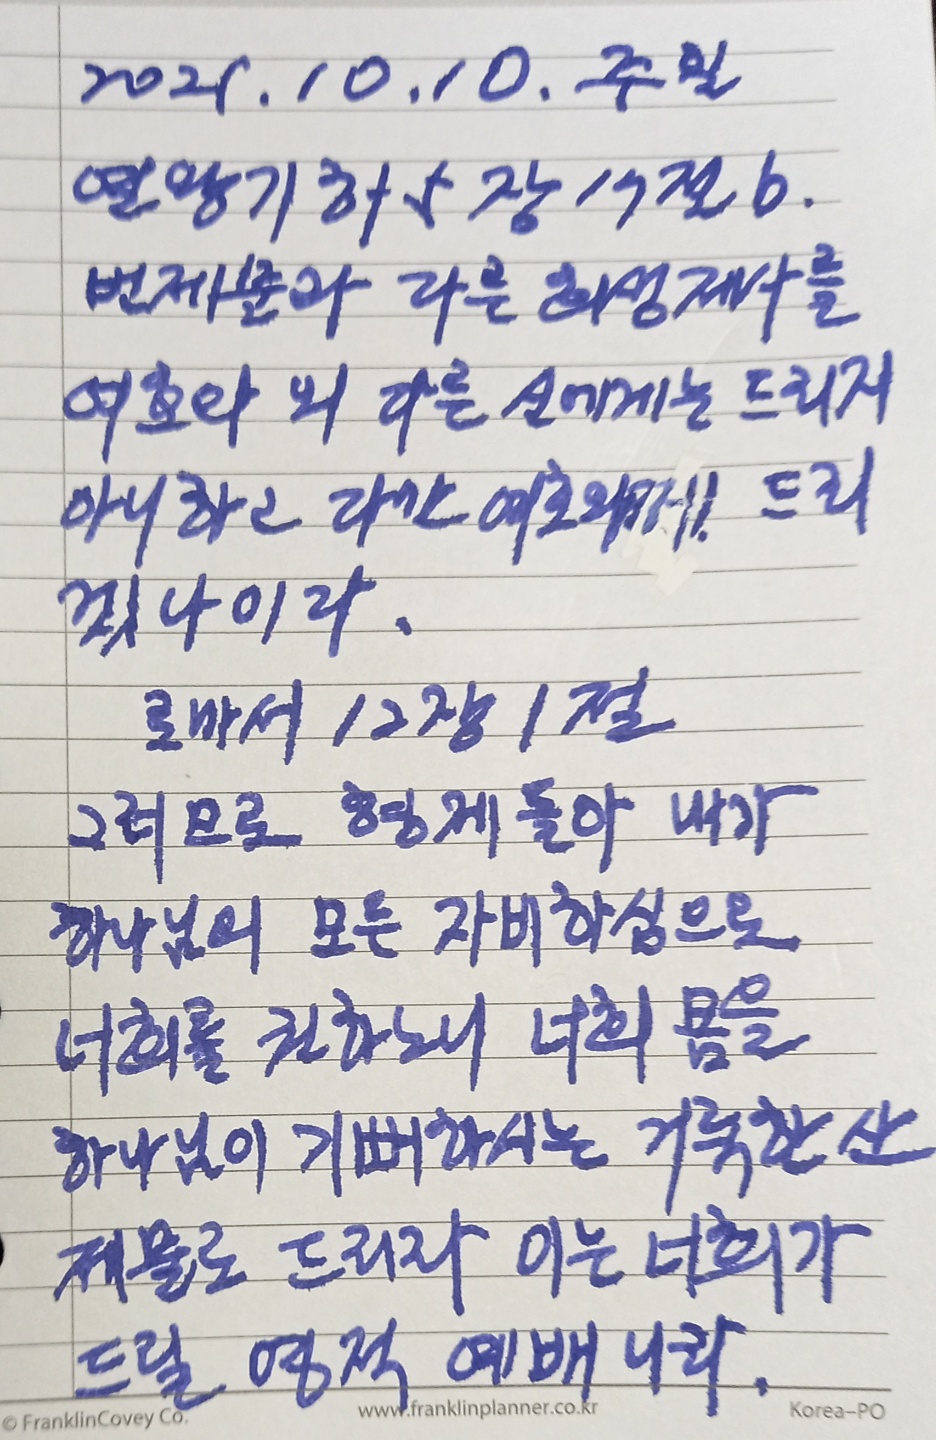 2021.10.10. 주일
열왕기하 5장 17절 b.
번제물과 다른 희생제사를
여호와 외 다른 신에게는 드리지
아니하고 다만 여호와께! 드리
겠나이다.
로마서 12장 1절
그러므로 형제들아 내가
하나님의 모든 자비하심으로
너희를 권하노니 너희 몸을
하나님이 기뻐하시는 거룩한 산
제물로 드리라 이는 너희가
드릴 영적 예배니라.
© FranklinCovey Co. www.franklinplanner.co.kr Korea-PO